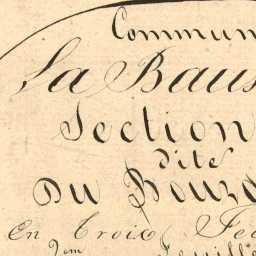 Commun
La Baus
Section
Dite
Du Bouzo
En Troix Feu
2em Feuille